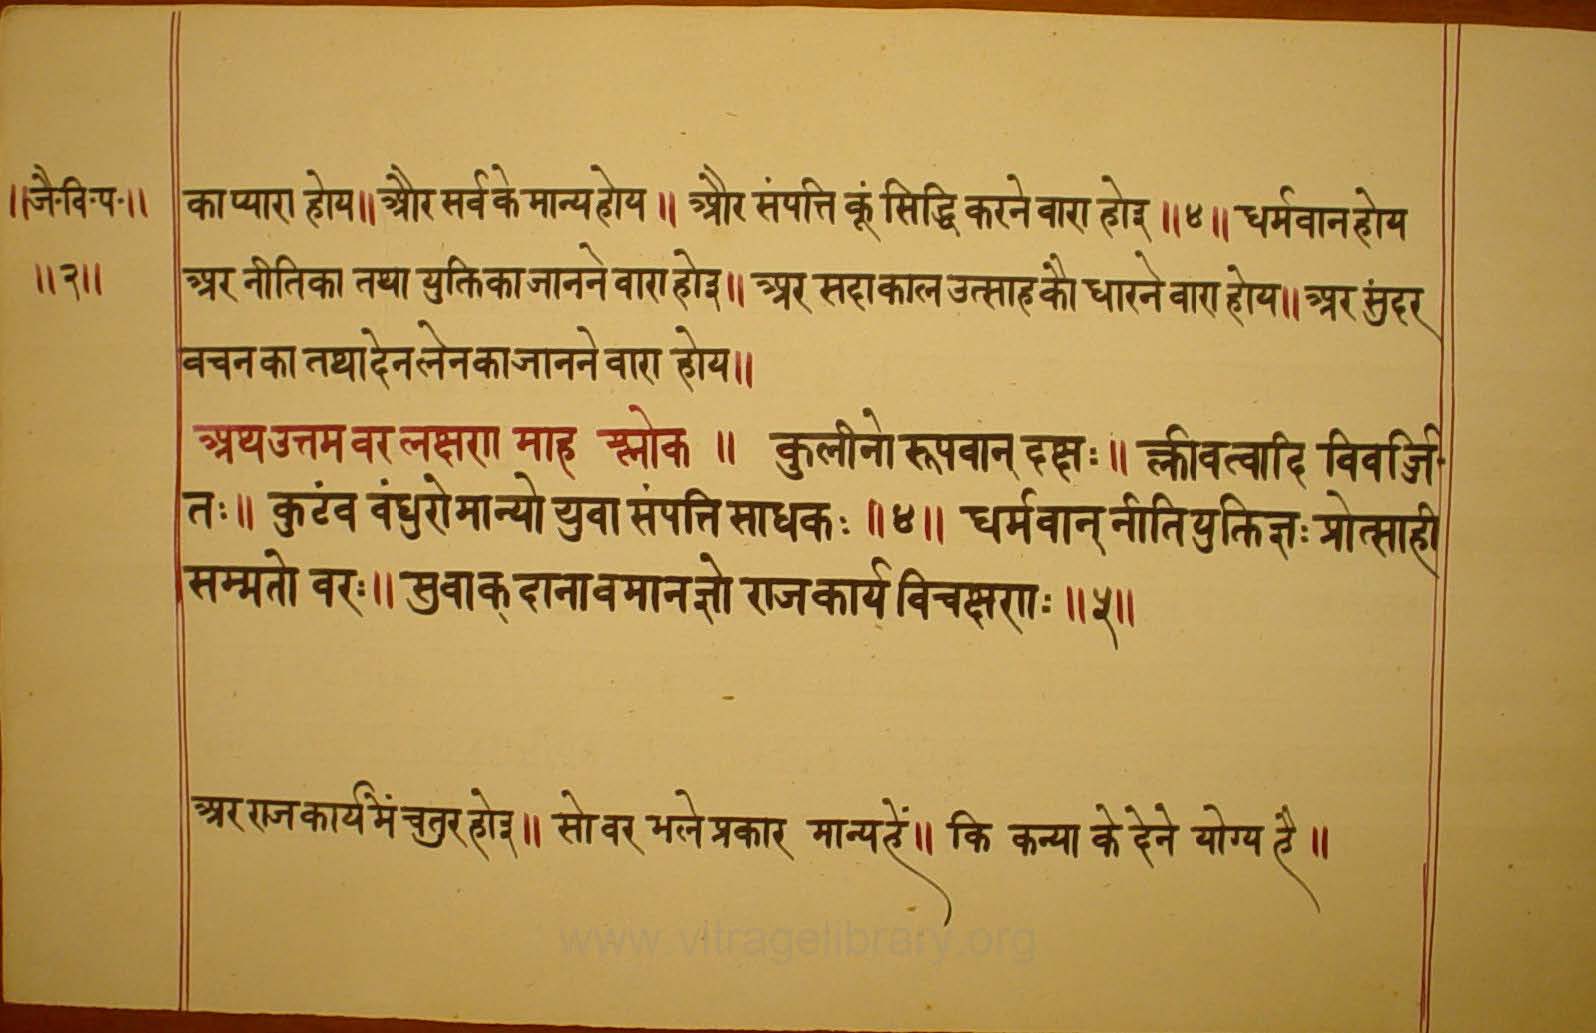 ॥जै·वि·प·॥
॥२॥
का प्यारा होय॥ और सर्व के मान्य होय ॥ और संपत्ति कूं सिद्धि करने वारा होइ ॥४॥ धर्मवान होय
अर नीति का तथा युक्ति का जानने वारा होइ॥ अर सदाकाल उत्साह कौ धारने वारा होय॥ अर सुंदर
वचन का तथा देन लेन का जानने वारा होय॥
अथ उत्तम वर लक्षण माह श्लोक ॥ कुलीनो रूपवान् दक्षः॥ क्लीवत्वादि विवर्ज्जि
तः॥ कुटंव वंधुरो मान्यो युवा संपत्ति साधकः ॥४॥ धर्मवान् नीति युक्तिज्ञः प्रोत्साही
सम्मतो वरः॥ सुवाक् दानावमानज्ञो राजकार्य विचक्षणः ॥५॥
अर राजकार्य मैं चतुर होइ॥ सो वर भले प्रकार मान्य हें॥ कि कन्या के देने योग्य है ॥
www.vitragelibrary.org